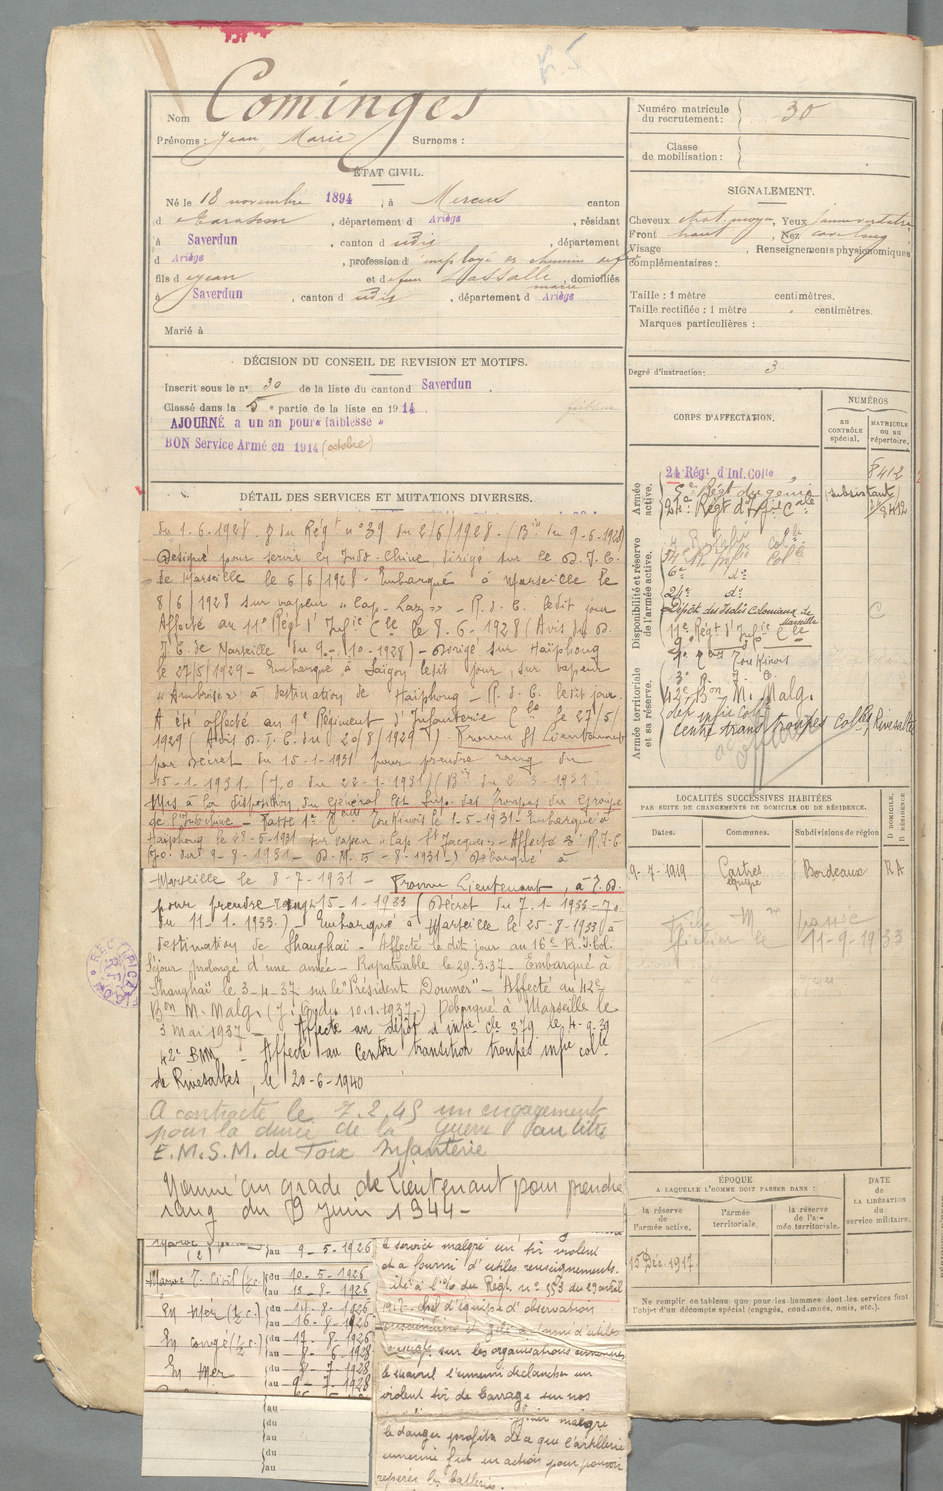 Nom Cominges
Prénoms : Jean Marie Surnoms :
ÉTAT CIVIL.
Né le 18 novembre 1894, à Mercus canton
d Tarascon, département d Ariège, résidant
à Saverdun, canton d udis, département
d Ariège, profession d employé de chemin de fer
fils d Jean et de feu Lassalle marie, domiciliés
à Saverdun, canton d udis, département d Ariège
Marié à
DÉCISION DU CONSEIL DE REVISION ET MOTIFS.
Inscrit sous le n° 30 de la liste du canton d Saverdun.
Classé dans la 5e partie de la liste en 1914
faiblesse
AJOURNÉ à un an pour « faiblesse »
BON Service Armé en 1914 (octobre)
DÉTAIL DES SERVICES ET MUTATIONS DIVERSES.
du 1.6.1928. du Régt n° 39 du 2/6/1928. (Bin du 9-6-1928)
Désigné pour servir en Indo-Chine dirigé sur le D.I.C.
de Marseille le 6/6/1928. Embarqué à Marseille le
8/6/1928 sur vapeur "Cap. Lay" - R.d.C. ledit jour
Affecté au 11e Régt d'Infie Cle le 8-6-1928 (Avis du D.
I.C. de Marseille du 9.-10-1928) - Dirigé sur Haïphong
le 27/5/1929 - Embarqué à Saïgon ledit jour, sur vapeur
"Amboise" à destination de Haïphong - R.d.C. ledit jour.
A été affecté au 9e Régiment d'Infanterie Cle le 27/5/
1929 (Avis D.I.C. du 20/8/1929) Promu St Lieutenant
par Décret du 15-1-1931 pour prendre rang du
15-1-1931. (J.O du 22-1-1931) (Bin du 2-3-1931)
Mis à la disposition du Général Ct Sup. des Troupes du Groupe
de l'Indochine - Passe 1er Tirailleurs Tonkinois le 1-5-1931 - Embarqué à
Haïphong le 28-5-1931 sur vapeur "Cap St Jacques" - Affecté 3e R.I.C.
(J.O. du 9-8-1931 - D.M. 5-8-1931) Débarqué à
Marseille le 8-7-1931 - Promu Lieutenant, à T.D.
pour prendre rang 15-1-1933 (Décret du 7.1-1933 - J.O.
du 11-1-1933.) - Embarqué à Marseille le 25-8-1933 à
destination de Shanghaï - Affecté le dit jour au 16e R.I.Col.
Séjour prolongé d'une année - Rapatriable le 29.3.37 - Embarqué à
Shanghaï le 3-4-37 sur le "Président Doumer" - Affecté au 42e
Bon M. Malg. (J.O. du 10.1.1937.) Débarqué à Marseille le
3 Mai 1937 - Affecté au dépôt d'infie cle 379 le 4-9-39
42e BMM - Affecté au Centre transition troupes infie colle
de Rivesaltes, le 20-6-1940
A contracté le 7.2.45 un engagement
pour la durée de la Guerre au titre
E.M.S.M. de Foix Infanterie
Nommé au grade de Lieutenant pour prendre
rang du 9 Juin 1944 -
(2) au 9-5-1926
Maroc T. Civil (1/2 c.) du 10-5-1926
au 13-8-1926
En Mer (1/2 c.) du 14-8-1926
au 16-8-1926
En congé (1/2 c.) du 17-8-1926
au 8-6-1928
En Mer du 8-7-1928
au 9-7-1928
au
du
au
du
au
le service malgré un tir violent
et a fourni d'utiles renseignements.
Cité à l'o/ du Régt n° 353 du 29 avril
1917 - chef d'équipe d'observation
sur les organisations ennemies
le 12 avril l'ennemi déclancher un
violent tir de barrage sur nos
malgré
le danger profita de ce que l'artillerie
ennemie fut en action pour pouvoir
repérer les batteries.
Numéro matricule du recrutement : 30
Classe de mobilisation :
SIGNALEMENT.
Cheveux chat. moyen, Yeux
Front haut, Nez cave long
Visage, Renseignements physionomiques
complémentaires :
Taille : 1 mètre centimètres.
Taille rectifiée : 1 mètre centimètres.
Marques particulières :
Degré d'instruction : 3
CORPS D'AFFECTATION.
NUMÉROS
AU CONTRÔLE spécial.
MATRICULE OU AU répertoire.
Armée active.
24 Régt d'Inf. Colle 8412
5e Régt du génie (subsistant)
24e Régt d'Infie Cale 8412
Disponibilité et réserve de l'armée active.
6e do
24e do
Dépôt des Isolés Coloniaux de Marseille C
11e Régt d'Infie Cle
9e do
1er Tirs Tonkinois
Armée territoriale et sa réserve.
3e R.I.C.
42e Bon M. Malg.
dép infie col
centre trans troupes colles Rivesaltes
LOCALITÉS SUCCESSIVES HABITÉES
PAR SUITE DE CHANGEMENTS DE DOMICILE OU DE RÉSIDENCE.
Dates. Communes. Subdivisions de région D DOMICILE, R RÉSIDENCE
9-7-1919 Castres Bordeaux RA
passé
fichier le 11-9-1933
ÉPOQUE
A LAQUELLE L'HOMME DOIT PASSER DANS :
DATE DE LA LIBÉRATION du service militaire.
la réserve de l'armée active.
l'armée territoriale.
la réserve de l'armée territoriale.
15 Déc. 1917
Ne remplir ce tableau que pour les hommes dont les services font
l'objet d'un décompte spécial (engagés, condamnés, omis, etc.).